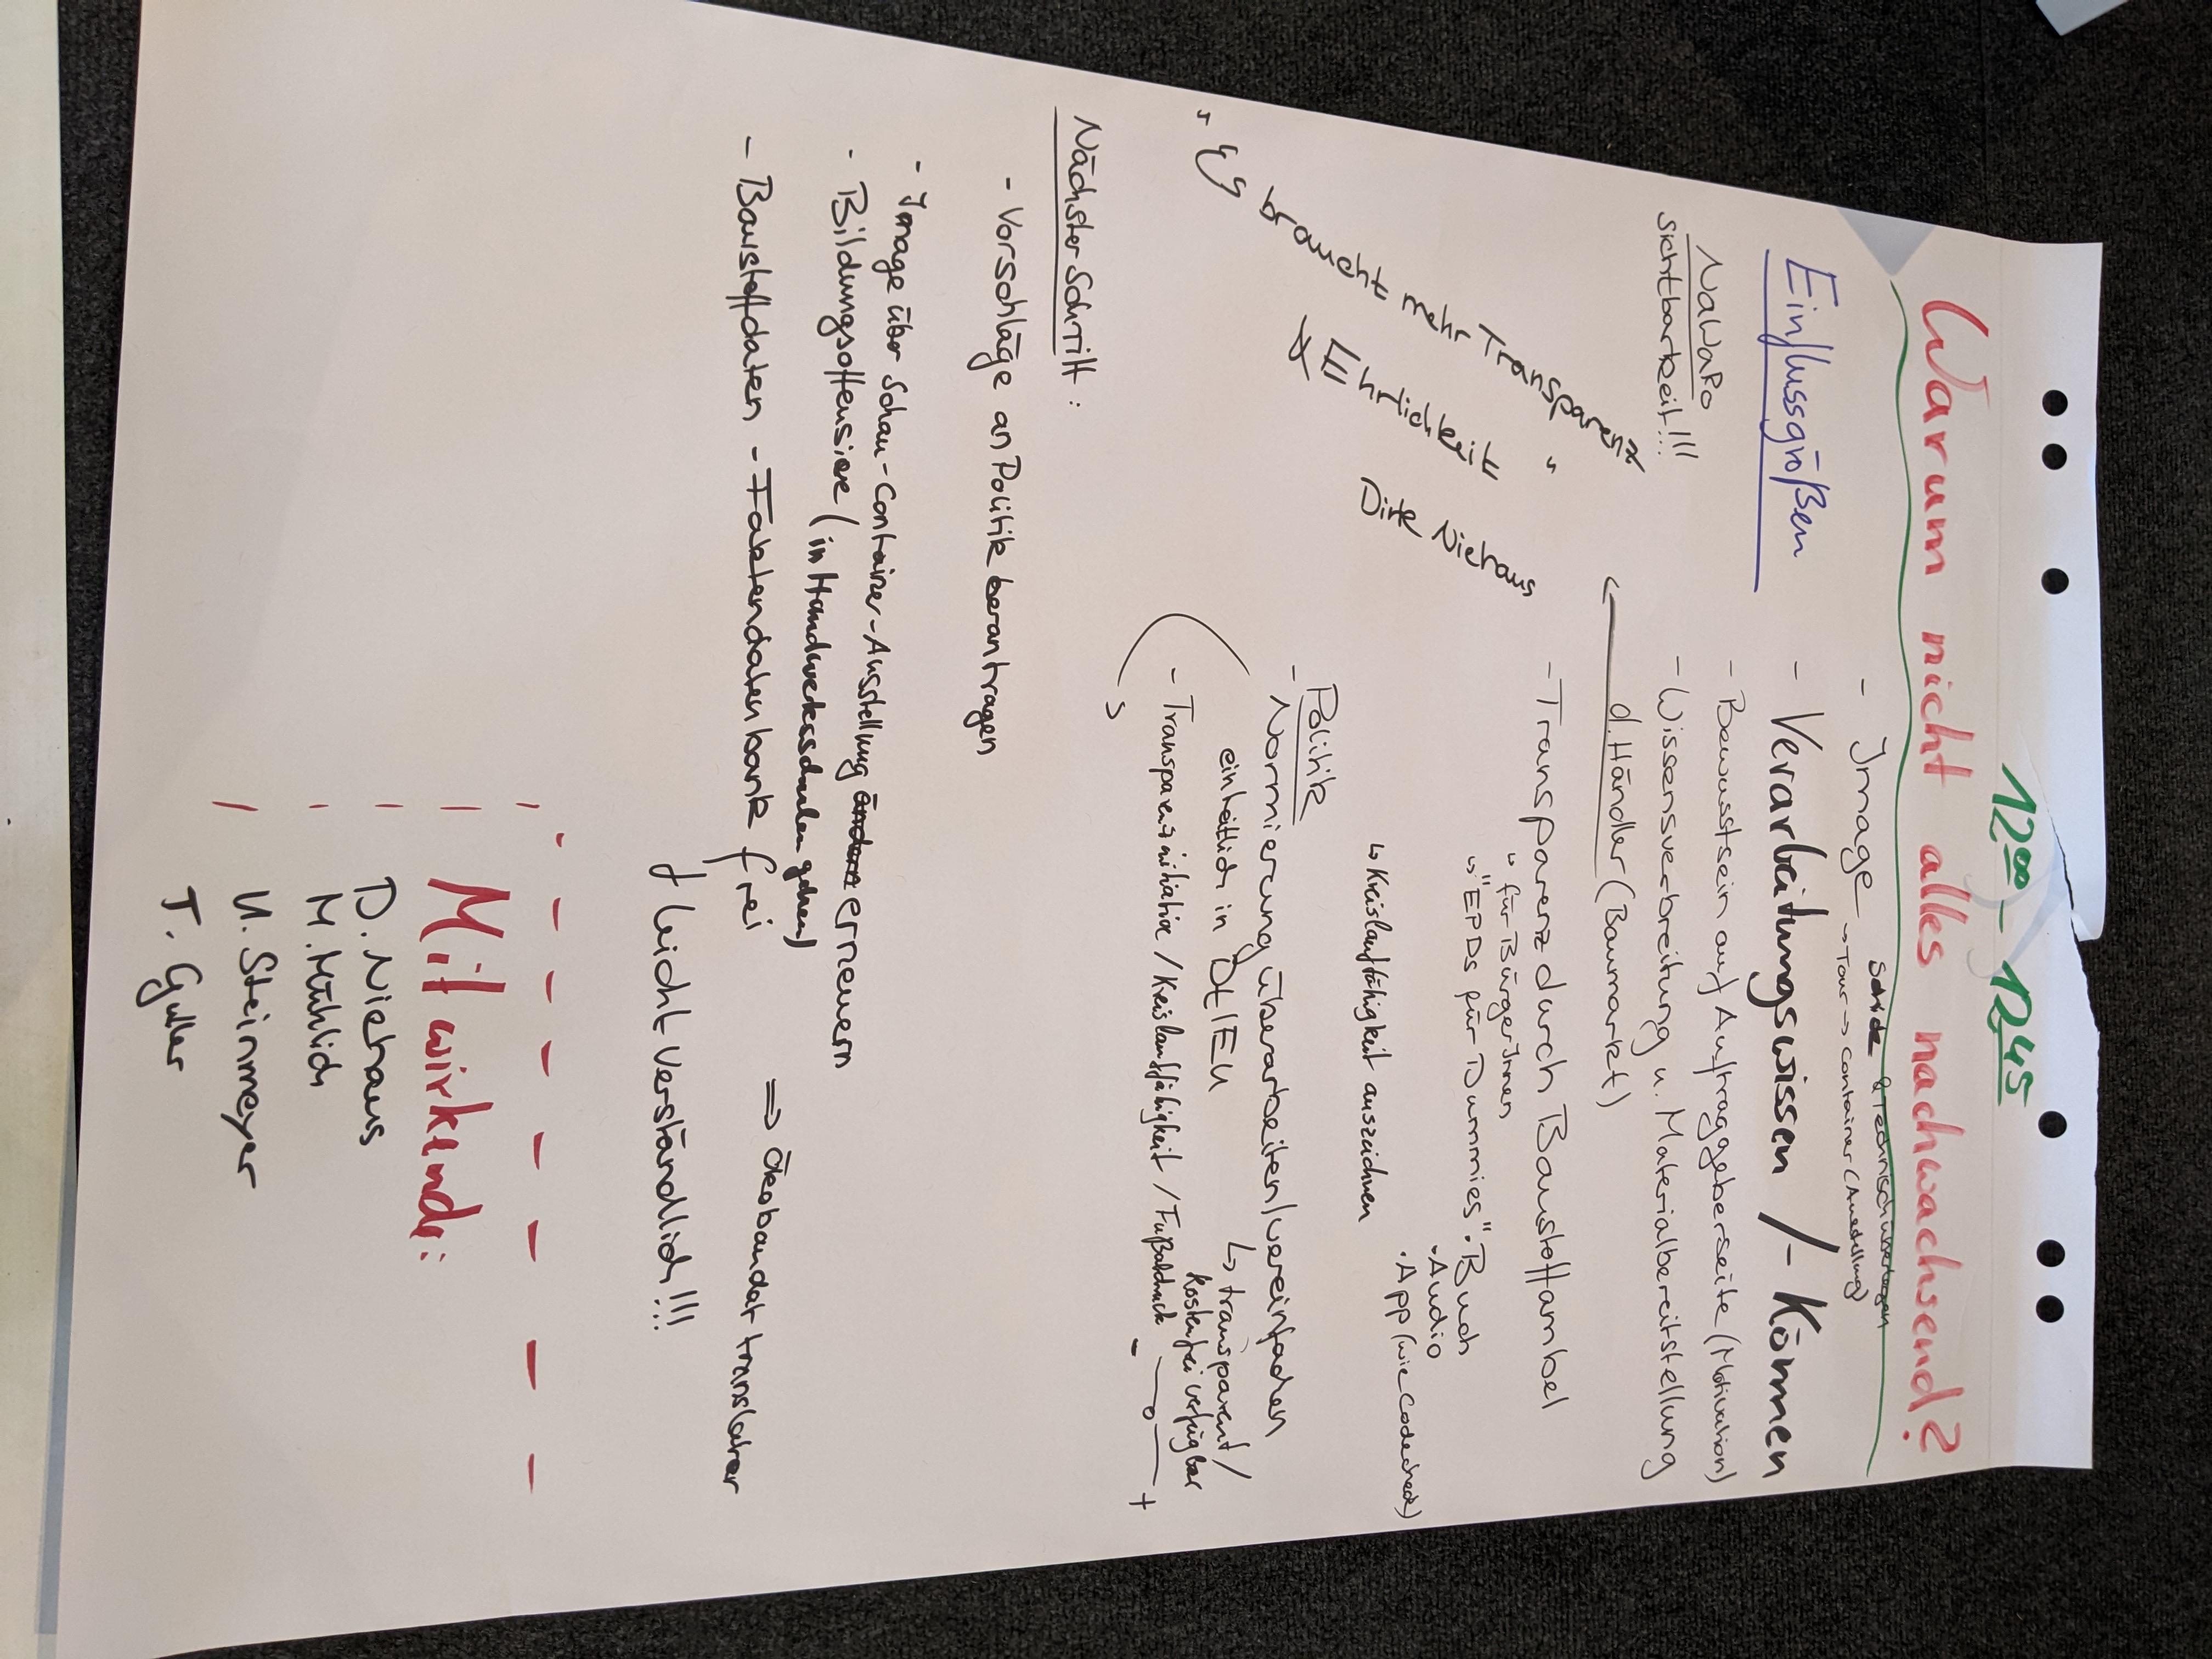 12⁰⁰ - 12⁴⁵
Warum nicht alles nachwachsend?
Einflussgrößen
- Image → Tour → Container (Ausstellung)
schick & technisch überlegen
- Verarbeitungswissen /- Können
NaWaRo
sichtbarkeit!!!
- Bewusstsein auf Auftraggeberseite (Motivation)
- Wissensverbreitung u. Materialbereitstellung
d. Händler (Baumarkt)
- Transparenz durch Baustoffampel
↳ für BürgerInnen
↳ "EPDs für Dummies" · Buch
· Audio
· App (wie Codecheck)
↳ Kreislauffähigkeit auszeichnen
braucht mehr Transparenz
& Ehrlichkeit "
Dirk Niehaus
Politik
- Normierung überarbeiten/vereinfachen
einheitlich in Dt/EU
↳ transparent/
kostenfrei verfügbar
- Transparenzinitiative / Kreislauffähigkeit / Fußabdruck - — o — +
Nächster Schritt:
- Vorschläge an Politik beantragen
- Image über Schau-Container-Ausstellung ändern erneuern
- Bildungsoffensive (in Handwerksschulen gehen)
- Baustoffdaten - Faktendatenbank frei
⇒ Ökobaudat translater
leicht verständlich!!!
Mitwirkende:
D. Niehaus
M. Mühlich
U. Steinmeyer
T.